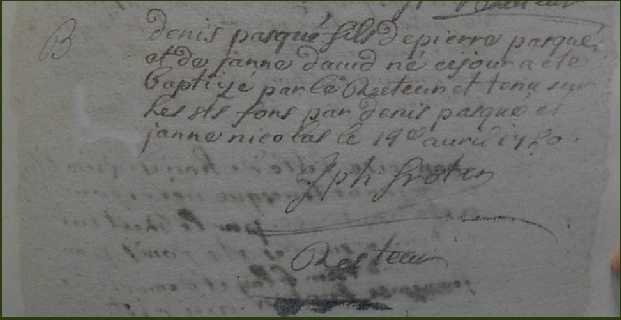 B
denis pasqué fils depierre pasqué
et de janne dauid né cejour a eté
baptizé par le Recteur et tenu sur
les sts fons par denis pasque et
janne nicolas le 19e auril
Jph
Recteur